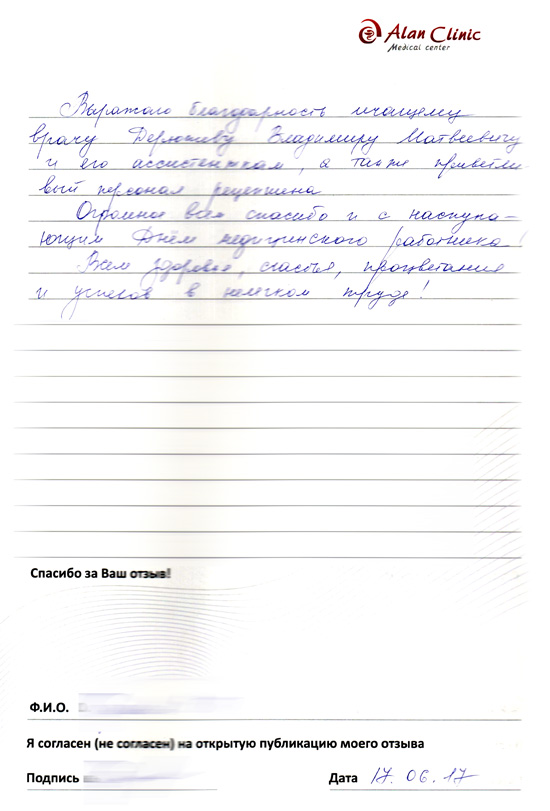 Alan Clinic
Medical center
Выражаю благодарность лечащему
врачу Владимиру Матвеевичу
и его ассистенткам, а также приветли
вый персонал рецепшена
Огромное всем спасибо и с наступа-
ющим Днём медицинского работника!
Всем здоровья, счастья, процветания
и успехов в нелегком труде!
Спасибо за Ваш отзыв!
Ф.И.О.
Я согласен (не согласен) на открытую публикацию моего отзыва
Подпись Дата 17.06.17